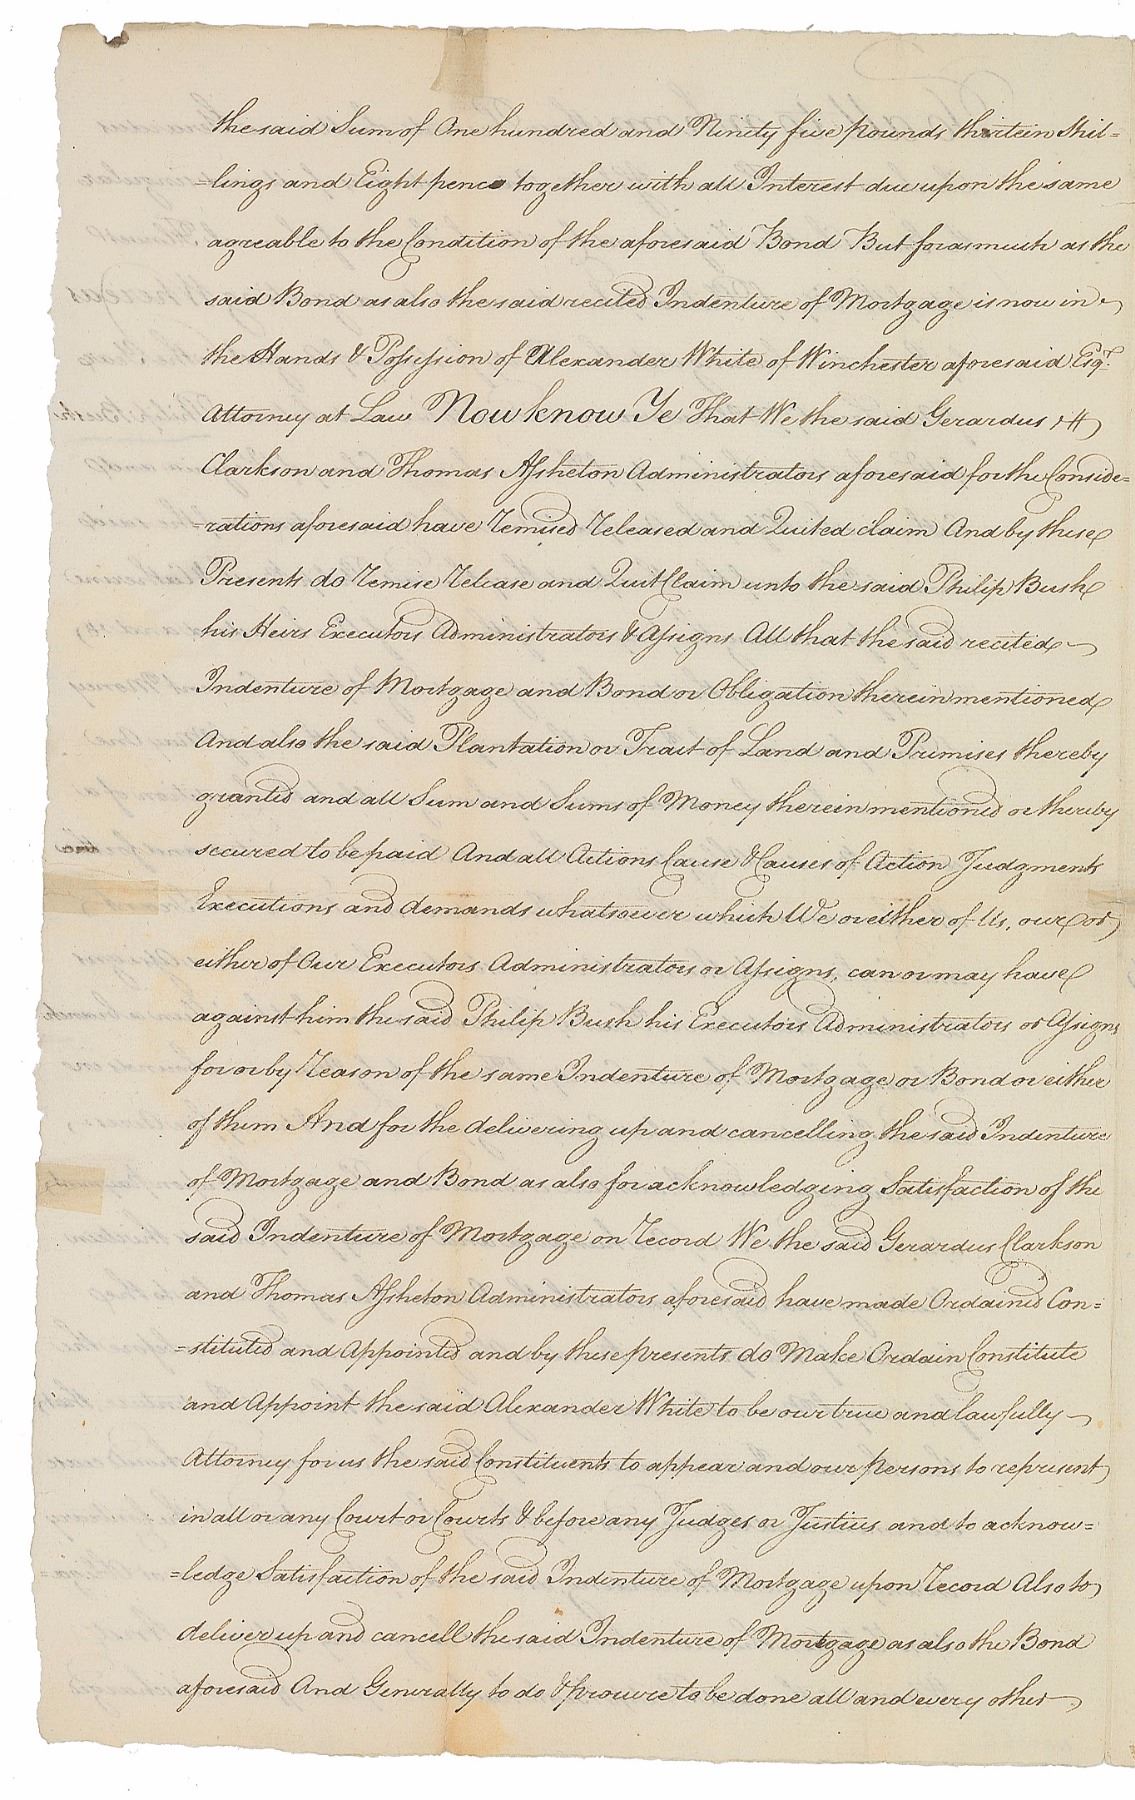 the said Sum of One hundred and Ninity five pounds thirtein Shil=
=lings and Eight pence together with all Interest due upon the same
agreable to the Condition of the aforesaid Bond But forasmuch as the
said Bond as also the said recited Indenture of Mortgage is now in
the Hands & Possession of Alexander White of Winchester aforesaid Esqr.
Attorney at Law Now know Ye That We the said Gerardus
Clarkson and Thomas Assheton Administrators aforesaid for the Conside=
=rations aforesaid have Remised Released and Quited claim And by these
Presents do Remise Release and Quit Claim unto the said Philip Bush
his Heirs Executors Administrators & Assigns All that the said recited
Indenture of Mortgage and Bond or Obligation therein mentioned
And also the said Plantation or Tract of Land and Premises thereby
granted and all Sum and Sums of Money therein mentioned or thereby
secured to be paid And all Actions Cause & Causes of Action Judgments
Executions and demands whatsoever which We or either of Us, our or
either of Our Executors Administrators or Assigns, can or may have
against him the said Philip Bush his Executors Administrators or Assigns
for or by Reason of the same Indenture of Mortgage or Bond or either
of them And for the delivering up and cancelling the said Indenture
of Mortgage and Bond as also for acknowledging Satisfaction of the
said Indenture of Mortgage on Record We the said Gerardus Clarkson
and Thomas Assheton Administrators aforesaid have made Ordained Con=
=stituted and Appointed and by these presents do Make Ordain Constitute
and Appoint the said Alexander White to be our true and lawfully
Attorney for us the said Constituents to appear and our Persons to represent
in all or any Court or Courts & before any Judges or Justices and to acknow=
=ledge Satisfaction of the said Indenture of Mortgage upon Record Also to
deliver up and cancell the said Indenture of Mortgage as also the Bond
aforesaid And Generally to do & procure to be done all and every other